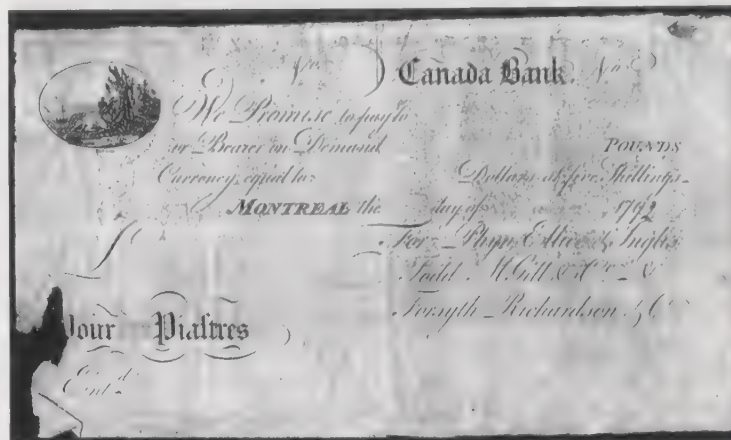 No. Canada Bank. No.
We Promise to pay to
or Bearer on Demand POUNDS
Currency, equal to Dollars at five Shillings
MONTREAL the day of 1792
For Phyn, Ellice & Inglis
Todd, McGill & Co. &
Forsyth Richardson & Co
Pour Piastres